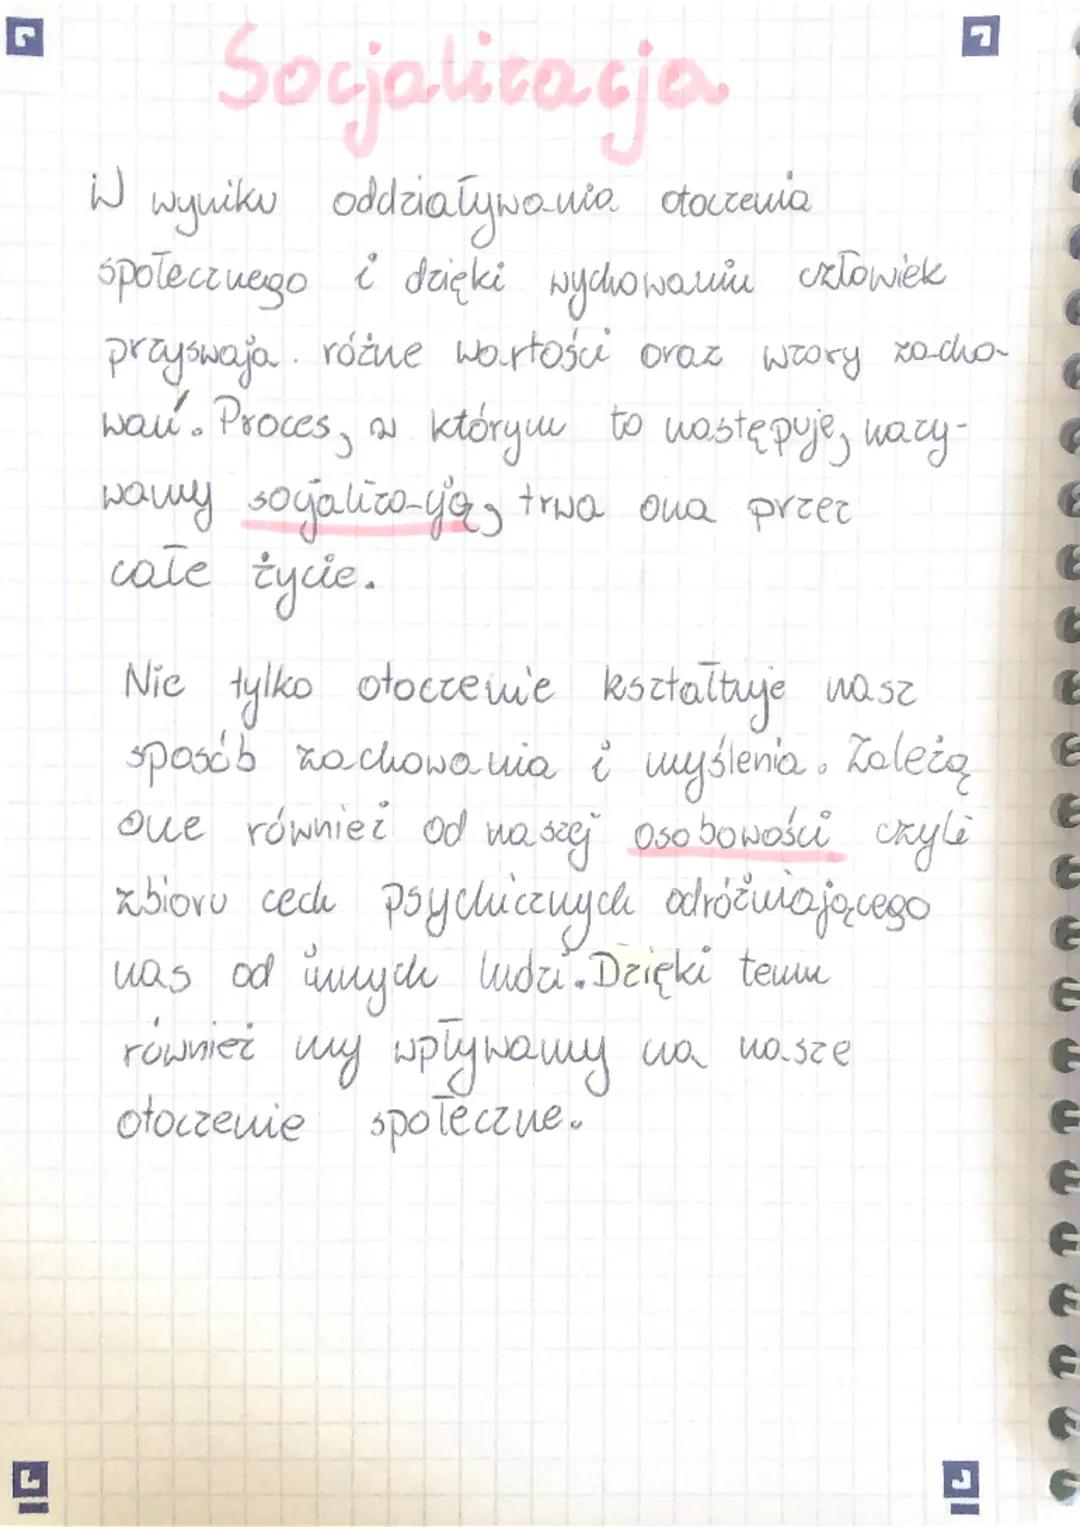 Socjalizacja
W wyniku oddziaływania otoczenia
społecznego i dzięki wychowaniu człowiek
przyswaja różne wartości oraz wzory zacho-
wań. Proces, w którym to następuje, nazy-
wamy socjalizacją, trwa ona przez
całe życie.
Nie tylko otoczenie kształtuje nasz
sposób zachowania i myślenia. Zależą
one również od naszej osobowości czyli
zbioru cech psychicznych odróżniającego
nas od innych ludzi. Dzięki temu
również my wpływamy na nasze
otoczenie społeczne.